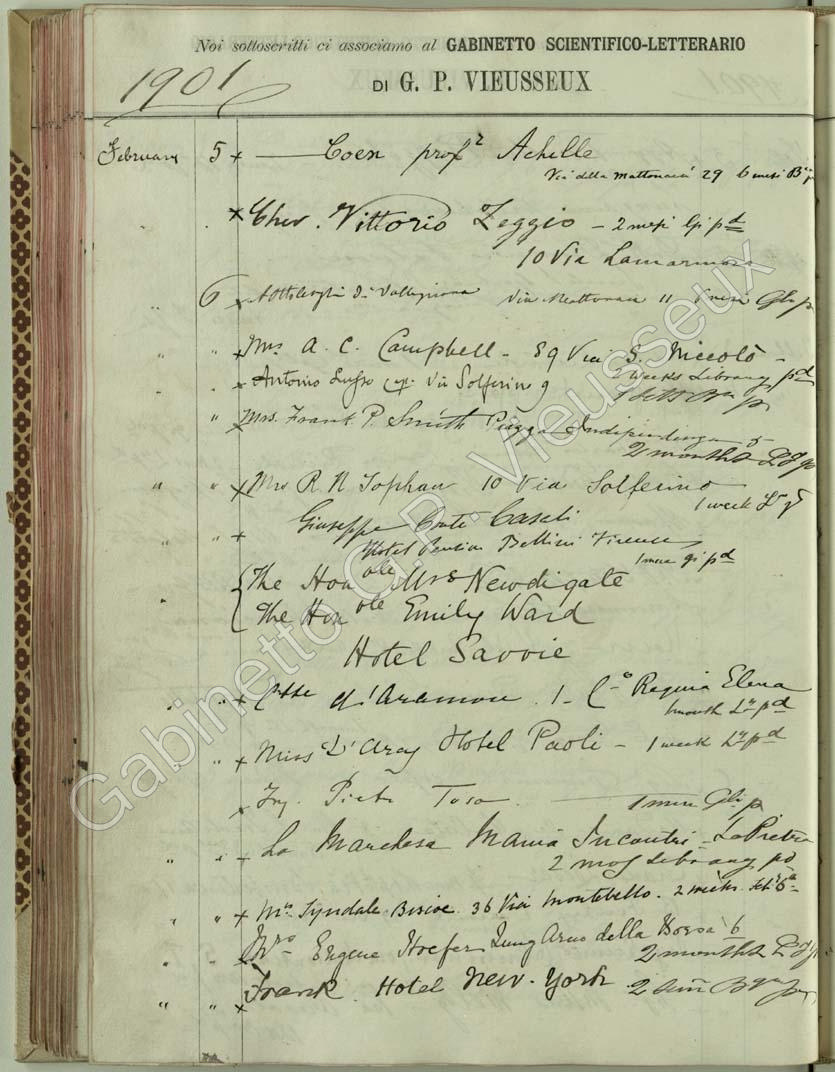 Noi sottoscritti ci associamo al GABINETTO SCIENTIFICO-LETTERARIO
1901
DI G. P. VIEUSSEUX
February 5 x — Coen profr Achille
Via della Mattonaia 29 6 mesi
x Chev. Vittorio Zeggio - 2 mesi pd
10 Via Lamarmora
" 6 x Via Mattonaia 11
" " x Mrs A. C. Campbell - 89 Via S. Niccolò -
2 weeks Library pd
" x Antonio Via Solferino 9
" x Mrs. Frank P. Smith Piazza Indipendenza
2 months
" " x Mrs R N Tophan 10 Via Solferino
1 week
" x Giuseppe Conte Casati
Hotel Pension Bellini Firenze
1 mese pd
{ The Honble Mrs Newdigate
The Honble Emily Ward
Hotel Savoie
" " x Ctsse d'Aramon . 1 - Co Regina Elena
1 month Ly pd
" x Miss D'Arcy Hotel Paoli - 1 week Ly pd
x Ing. Pietro
" " x La Marchesa Maria Incontri - La Pietra
2 mos Library pd
" " x Mrs Tyndale Biscoe. 36 Via Montebello. 2 weeks.
" x Mrs Eugene Hoefer Lung Arno della Borsa 6
2 months
" " x Frank. Hotel New-York
Gabinetto G.P. Vieusseux